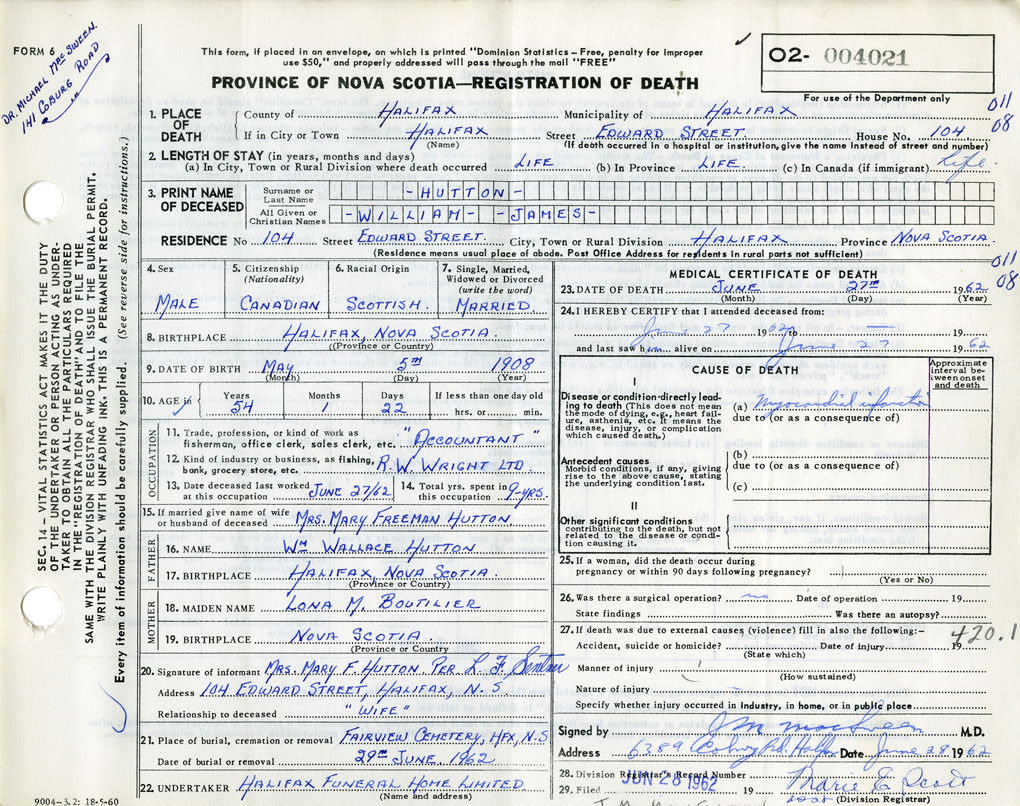 FORM 6
DR. MICHAEL MACSWEEN.
141 COBURG ROAD
This form, if placed in an envelope, on which is printed "Dominion Statistics – Free, penalty for improper
use $50," and properly addressed will pass through the mail "FREE"
PROVINCE OF NOVA SCOTIA—REGISTRATION OF DEATH
02- 004021
For use of the Department only
011
08
1. PLACE OF DEATH
County of HALIFAX Municipality of HALIFAX
If in City or Town HALIFAX Street EDWARD STREET. House No. 104
(Name) (If death occurred in a hospital or institution, give the name instead of street and number)
2. LENGTH OF STAY (in years, months and days)
(a) In City, Town or Rural Division where death occurred LIFE (b) In Province LIFE. (c) In Canada (if immigrant) Life.
3. PRINT NAME OF DECEASED
Surname or Last Name -HUTTON-
All Given or Christian Names -WILLIAM- -JAMES-
RESIDENCE No 104 Street EDWARD STREET. City, Town or Rural Division HALIFAX Province NOVA SCOTIA.
(Residence means usual place of abode. Post Office Address for residents in rural parts not sufficient)
011
08
4. Sex MALE
5. Citizenship (Nationality) CANADIAN
6. Racial Origin SCOTTISH.
7. Single, Married, Widowed or Divorced (write the word) MARRIED.
8. BIRTHPLACE HALIFAX, NOVA SCOTIA.
(Province or Country)
9. DATE OF BIRTH MAY 5TH 1908
(Month) (Day) (Year)
10. AGE in Years 54 Months 1 Days 22 If less than one day old hrs. or min.
OCCUPATION
11. Trade, profession, or kind of work as
fisherman, office clerk, sales clerk, etc. "ACCOUNTANT"
12. Kind of industry or business, as fishing,
bank, grocery store, etc. R.W. WRIGHT LTD
13. Date deceased last worked at this occupation JUNE 27/62
14. Total yrs. spent in this occupation 9-YRS.
15. If married give name of wife or husband of deceased MRS. MARY FREEMAN HUTTON.
FATHER
16. NAME WM WALLACE HUTTON
17. BIRTHPLACE HALIFAX, NOVA SCOTIA.
(Province or Country)
MOTHER
18. MAIDEN NAME LONA M. BOUTILIER
19. BIRTHPLACE NOVA SCOTIA.
(Province or Country
20. Signature of informant MRS. MARY F. HUTTON PER L. F.
Address 104 EDWARD STREET, HALIFAX, N.S
Relationship to deceased "WIFE"
21. Place of burial, cremation or removal FAIRVIEW CEMETERY, HFX, N.S
Date of burial or removal 29TH JUNE. 1962
22. UNDERTAKER HALIFAX FUNERAL HOME LIMITED
(Name and address)
9004—3.2: 18-5-60
MEDICAL CERTIFICATE OF DEATH
23. DATE OF DEATH JUNE 27TH 1962
(Month) (Day) (Year)
24. I HEREBY CERTIFY that I attended deceased from:
June 27 1962 to — 19
and last saw him alive on June 27 1962
CAUSE OF DEATH
Approximate interval between onset and death
I
Disease or condition directly leading to death (This does not mean the mode of dying, e.g., heart failure, asthenia, etc. It means the disease, injury, or complication which caused death.)
(a) Myocardial infarction
due to (or as a consequence of)
Antecedent causes
Morbid conditions, if any, giving rise to the above cause, stating the underlying condition last.
(b)
due to (or as a consequence of)
(c)
II
Other significant conditions
contributing to the death, but not related to the disease or condition causing it.
25. If a woman, did the death occur during
pregnancy or within 90 days following pregnancy?
(Yes or No)
26. Was there a surgical operation? no Date of operation 19
State findings Was there an autopsy?
27. If death was due to external causes (violence) fill in also the following:— 420.1
Accident, suicide or homicide? Date of injury 19
(State which)
Manner of injury
(How sustained)
Nature of injury
Specify whether injury occurred in industry, in home, or in public place
Signed by J M MacSween M.D.
Address 6389 Coburg Rd. Halifax Date June 28 1962
28. Division Registrar's Record Number
29. Filed JUN 28 1962 19 Marie E Scott
(Division Registrar)
SEC. 14 – VITAL STATISTICS ACT MAKES IT THE DUTY
OF THE UNDERTAKER OR PERSON ACTING AS UNDER-
TAKER TO OBTAIN ALL THE PARTICULARS REQUIRED
IN THE "REGISTRATION OF DEATH" AND TO FILE THE
SAME WITH THE DIVISION REGISTRAR WHO SHALL ISSUE THE BURIAL PERMIT.
WRITE PLAINLY WITH UNFADING INK. THIS IS A PERMANENT RECORD.
Every item of information should be carefully supplied. (See reverse side for instructions.)